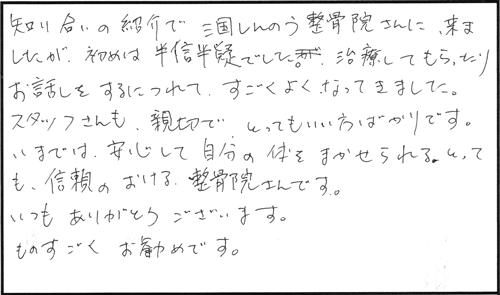 知り合いの紹介で 三国しんのう整骨院さんに、来ま
したが、初めは半信半疑でしたが、治療してもらったり
お話しをするにつれて、すごくよくなってきました。
スタッフさんも、親切で とってもいい方ばかりです。
いまでは、安心して自分の体をまかせられる。とって
も、信頼のおける、整骨院さんです。
いつも ありがとうございます。
ものすごく お勧めです。